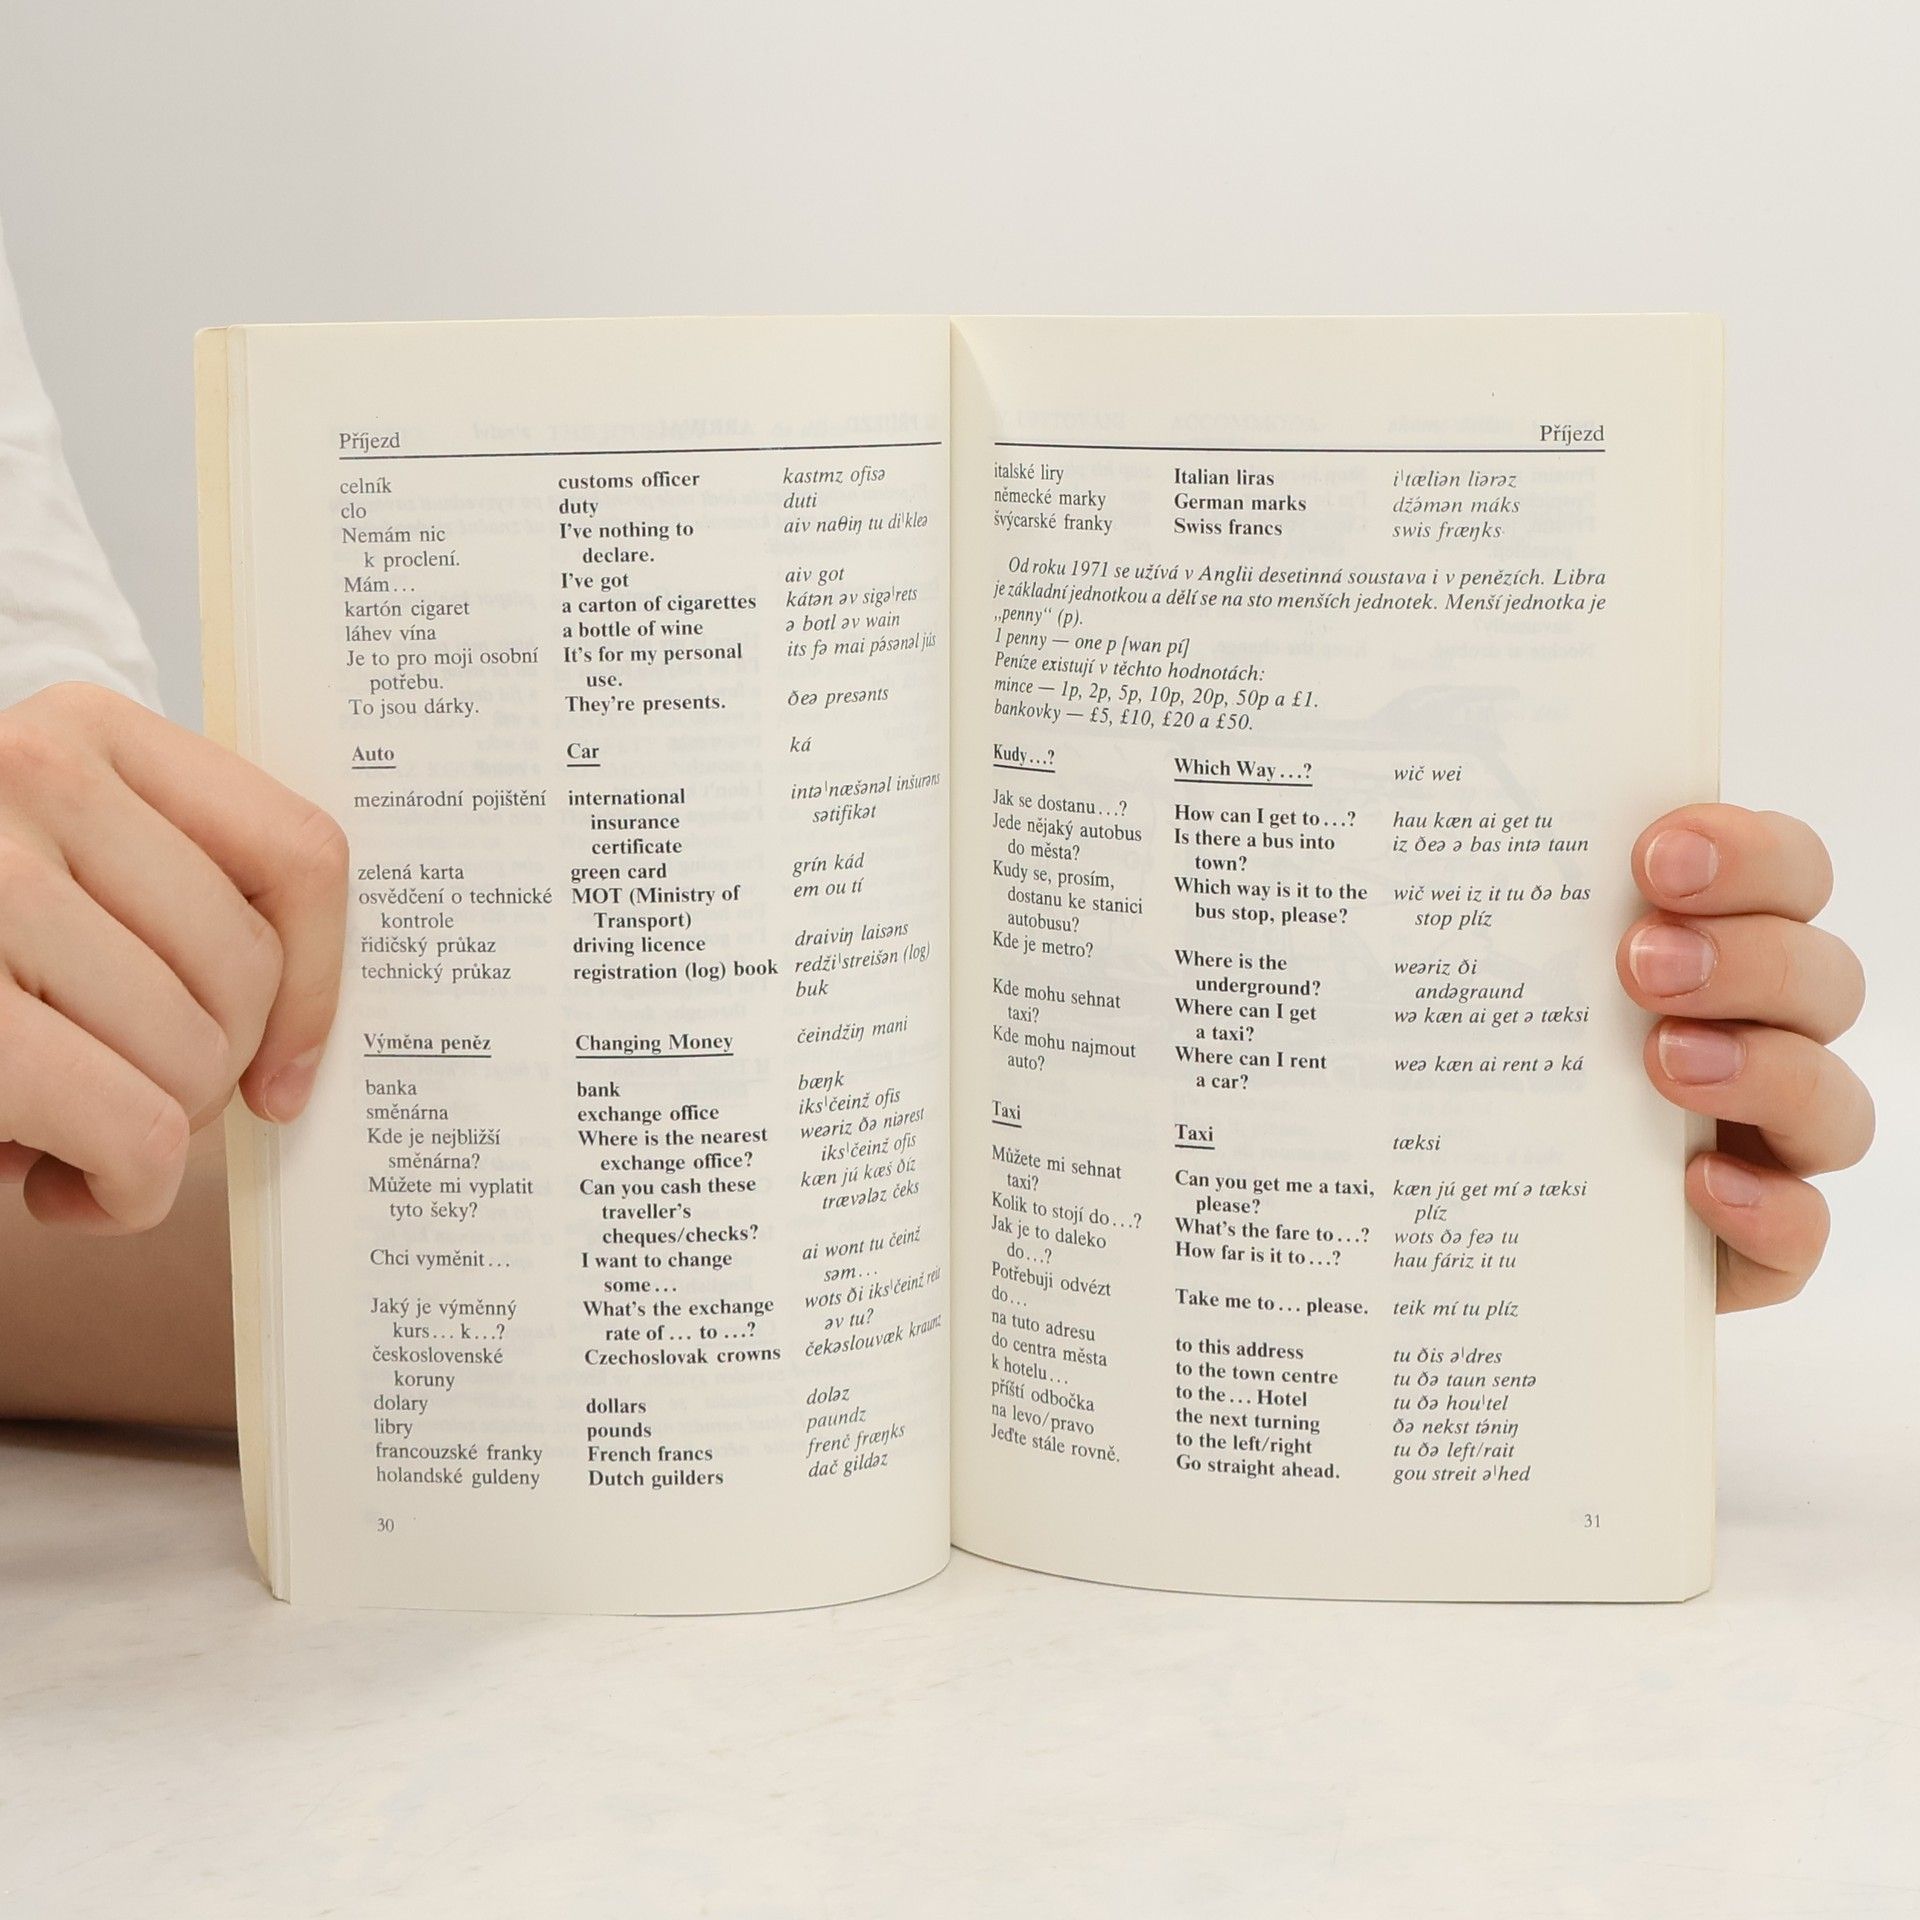 Příjezd
celník customs officer kastmz ofisə
clo duty duti
Nemám nic I've nothing to aiv naθiŋ tu diˈkleə
k proclení. declare.
Mám... I've got aiv got
kartón cigaret a carton of cigarettes kátən əv sigəˈrets
láhev vína a bottle of wine ə botl əv wain
Je to pro moji osobní It's for my personal its fə mai pə́sənəl jús
potřebu. use.
To jsou dárky. They're presents. ðeə presənts
Auto Car ká
mezinárodní pojištění international intəˈnæšənəl inšurəns
insurance sətifikət
certificate
zelená karta green card grín kád
osvědčení o technické MOT (Ministry of em ou tí
kontrole Transport)
řidičský průkaz driving licence draiviŋ laisəns
technický průkaz registration (log) book redžiˈstreišən (log)
buk
Výměna peněz Changing Money čeindžiŋ mani
banka bank bæŋk
směnárna exchange office iksˈčeinž ofis
Kde je nejbližší Where is the nearest weəriz ðə niərest
směnárna? exchange office? iksˈčeinž ofis
Můžete mi vyplatit Can you cash these kæn jú kæš ðíz
tyto šeky? traveller's trævələz čeks
cheques/checks?
Chci vyměnit... I want to change ai wont tu čeinž
some... səm...
Jaký je výměnný What's the exchange wots ði iksˈčeinž reit
kurs... k...? rate of... to ...? əv tu?
československé Czechoslovak crowns čekəslouvæk kraunz
koruny
dolary dollars doləz
libry pounds paundz
francouzské franky French francs frenč fræŋks
holandské guldeny Dutch guilders dač gildəz
30
Příjezd
italské liry Italian liras iˈtæliən liərəz
německé marky German marks džə́mən máks
švýcarské franky Swiss francs swis fræŋks
Od roku 1971 se užívá v Anglii desetinná soustava i v penězích. Libra
je základní jednotkou a dělí se na sto menších jednotek. Menší jednotka je
„penny“ (p).
1 penny — one p [wan pí]
Peníze existují v těchto hodnotách:
mince — 1p, 2p, 5p, 10p, 20p, 50p a £1.
bankovky — £5, £10, £20 a £50.
Kudy...? Which Way...? wič wei
Jak se dostanu...? How can I get to...? hau kæn ai get tu
Jede nějaký autobus Is there a bus into iz ðeə ə bas intə taun
do města? town?
Kudy se, prosím, Which way is it to the wič wei iz it tu ðə bas
dostanu ke stanici bus stop, please? stop plíz
autobusu?
Kde je metro? Where is the weəriz ði
underground? andəgraund
Kde mohu sehnat Where can I get wə kæn ai get ə tæksi
taxi? a taxi?
Kde mohu najmout Where can I rent weə kæn ai rent ə ká
auto? a car?
Taxi Taxi tæksi
Můžete mi sehnat Can you get me a taxi, kæn jú get mí ə tæksi
taxi? please? plíz
Kolik to stojí do...? What's the fare to...? wots ðə feə tu
Jak je to daleko How far is it to...? hau fáriz it tu
do...?
Potřebuji odvézt Take me to... please. teik mí tu plíz
do...
na tuto adresu to this address tu ðis əˈdres
do centra města to the town centre tu ðə taun sentə
k hotelu... to the... Hotel tu ðə houˈtel
příští odbočka the next turning ðə nekst tə́niŋ
na levo/pravo to the left/right tu ðə left/rait
Jeďte stále rovně. Go straight ahead. gou streit əˈhed
31